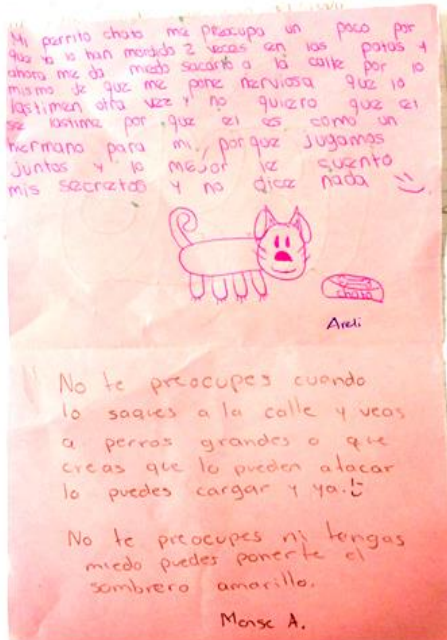 Mi perrito chato me preocupa un poco por
que ya lo han mordido 2 veces en las patas y
ahora me da miedo sacarlo a la calle por lo
mismo de que me pone nerviosa que lo
lastimen otra vez y no quiero que el
se lastime por que el es como un
hermano para mi, porque jugamos
juntos y lo mejor le cuento
mis secretos y no dice nada
chato
Areli
No te preocupes cuando
lo saques a la calle y veas
a perros grandes o que
creas que lo pueden atacar
lo puedes cargar y ya.
No te preocupes ni tengas
miedo puedes ponerte el
sombrero amarillo.
Monse A.